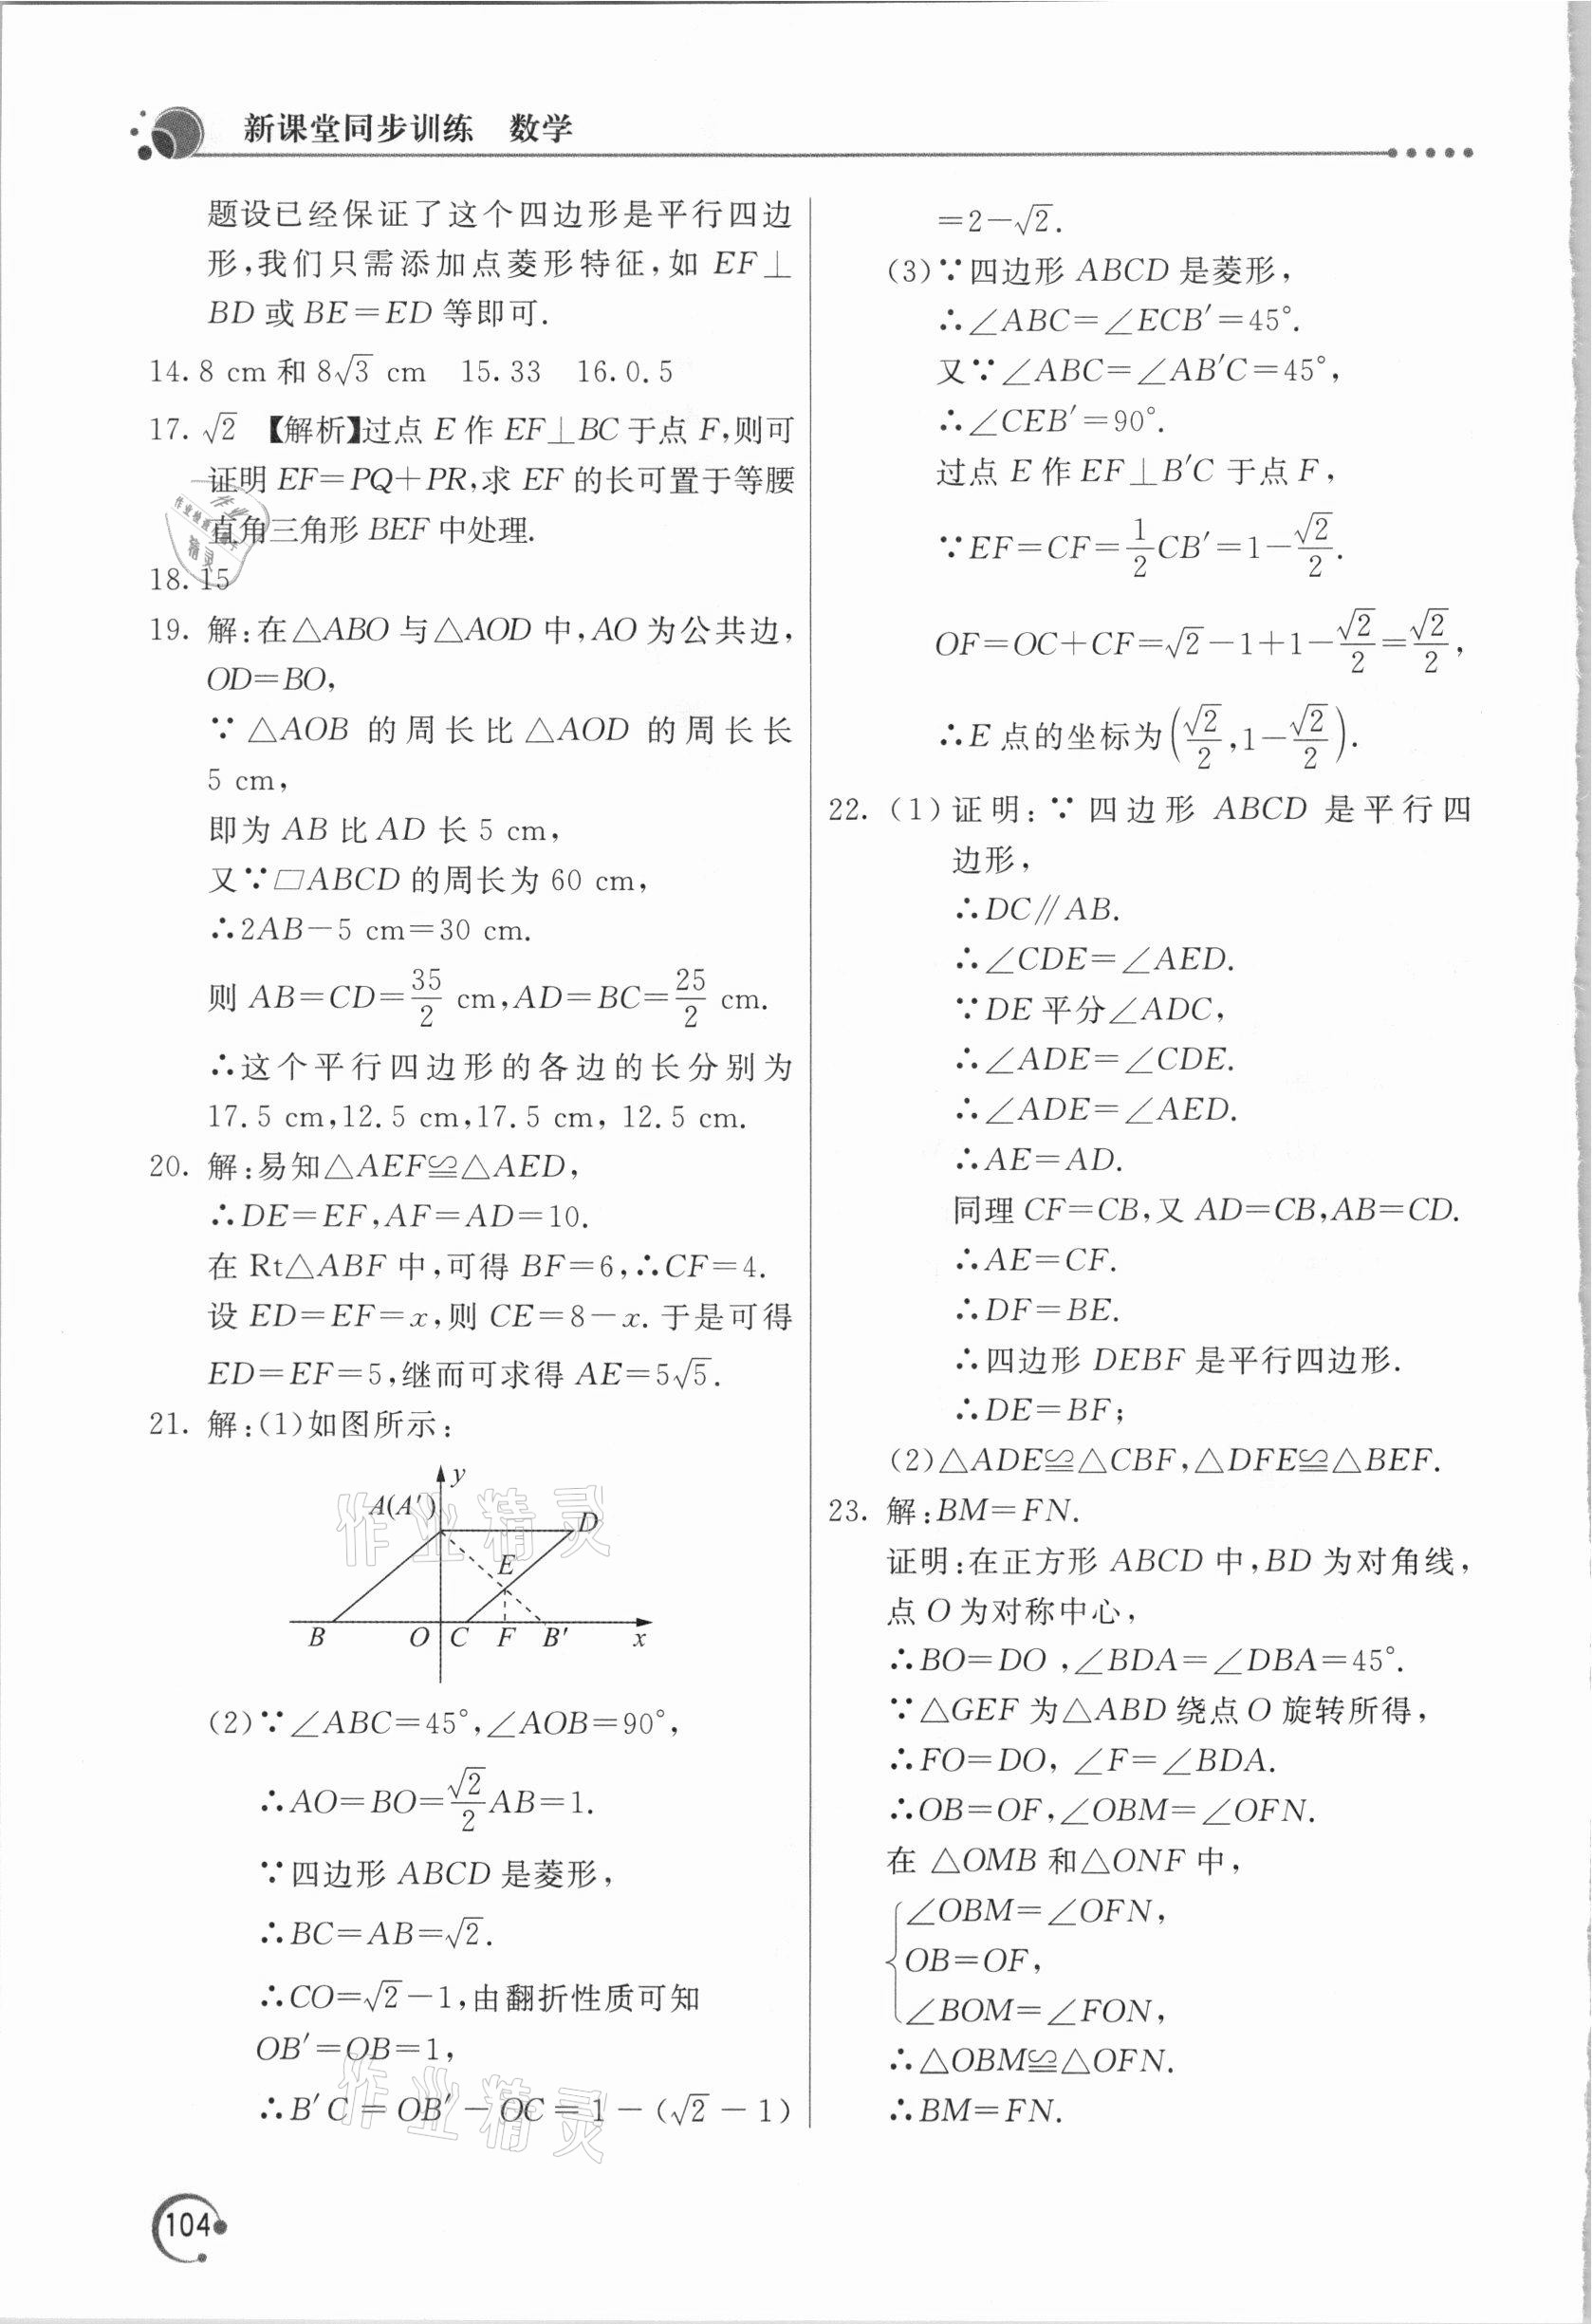 新课堂同步训练 数学
题设已经保证了这个四边形是平行四边
形,我们只需添加点菱形特征,如 EF⊥
BD 或 BE=ED 等即可.
14. 8 cm 和 8√3 cm 15. 33 16. 0.5
17. √2 【解析】过点 E 作 EF⊥BC 于点 F,则可
证明 EF=PQ+PR,求 EF 的长可置于等腰
直角三角形 BEF 中处理.
18. 15
19. 解:在△ABO 与△AOD 中,AO 为公共边,
OD=BO,
∵△AOB 的周长比△AOD 的周长长
5 cm,
即为 AB 比 AD 长 5 cm,
又∵□ABCD 的周长为 60 cm,
∴2AB-5 cm=30 cm.
则 AB=CD=35/2 cm,AD=BC=25/2 cm.
∴这个平行四边形的各边的长分别为
17.5 cm,12.5 cm,17.5 cm, 12.5 cm.
20. 解:易知△AEF≌△AED,
∴DE=EF,AF=AD=10.
在 Rt△ABF 中,可得 BF=6,∴CF=4.
设 ED=EF=x,则 CE=8-x. 于是可得
ED=EF=5,继而可求得 AE=5√5.
21. 解:(1)如图所示:
y
A(A′)
D
E
B O C F B′ x
(2)∵∠ABC=45°,∠AOB=90°,
∴AO=BO=√2/2 AB=1.
∵四边形 ABCD 是菱形,
∴BC=AB=√2.
∴CO=√2-1,由翻折性质可知
OB′=OB=1,
∴B′C=OB′-OC=1-(√2-1)
=2-√2.
(3)∵四边形 ABCD 是菱形,
∴∠ABC=∠ECB′=45°.
又∵∠ABC=∠AB′C=45°,
∴∠CEB′=90°.
过点 E 作 EF⊥B′C 于点 F,
∵EF=CF=1/2 CB′=1-√2/2.
OF=OC+CF=√2-1+1-√2/2=√2/2,
∴E 点的坐标为(√2/2,1-√2/2).
22. (1)证明:∵四边形 ABCD 是平行四
边形,
∴DC∥AB.
∴∠CDE=∠AED.
∵DE 平分∠ADC,
∴∠ADE=∠CDE.
∴∠ADE=∠AED.
∴AE=AD.
同理 CF=CB,又 AD=CB,AB=CD.
∴AE=CF.
∴DF=BE.
∴四边形 DEBF 是平行四边形.
∴DE=BF;
(2)△ADE≌△CBF,△DFE≌△BEF.
23. 解:BM=FN.
证明:在正方形 ABCD 中,BD 为对角线,
点 O 为对称中心,
∴BO=DO ,∠BDA=∠DBA=45°.
∵△GEF 为△ABD 绕点 O 旋转所得,
∴FO=DO, ∠F=∠BDA.
∴OB=OF,∠OBM=∠OFN.
在 △OMB 和△ONF 中,
∠OBM=∠OFN,
OB=OF,
∠BOM=∠FON,
∴△OBM≌△OFN.
∴BM=FN.
104
作业精灵
作业精灵
作业精灵